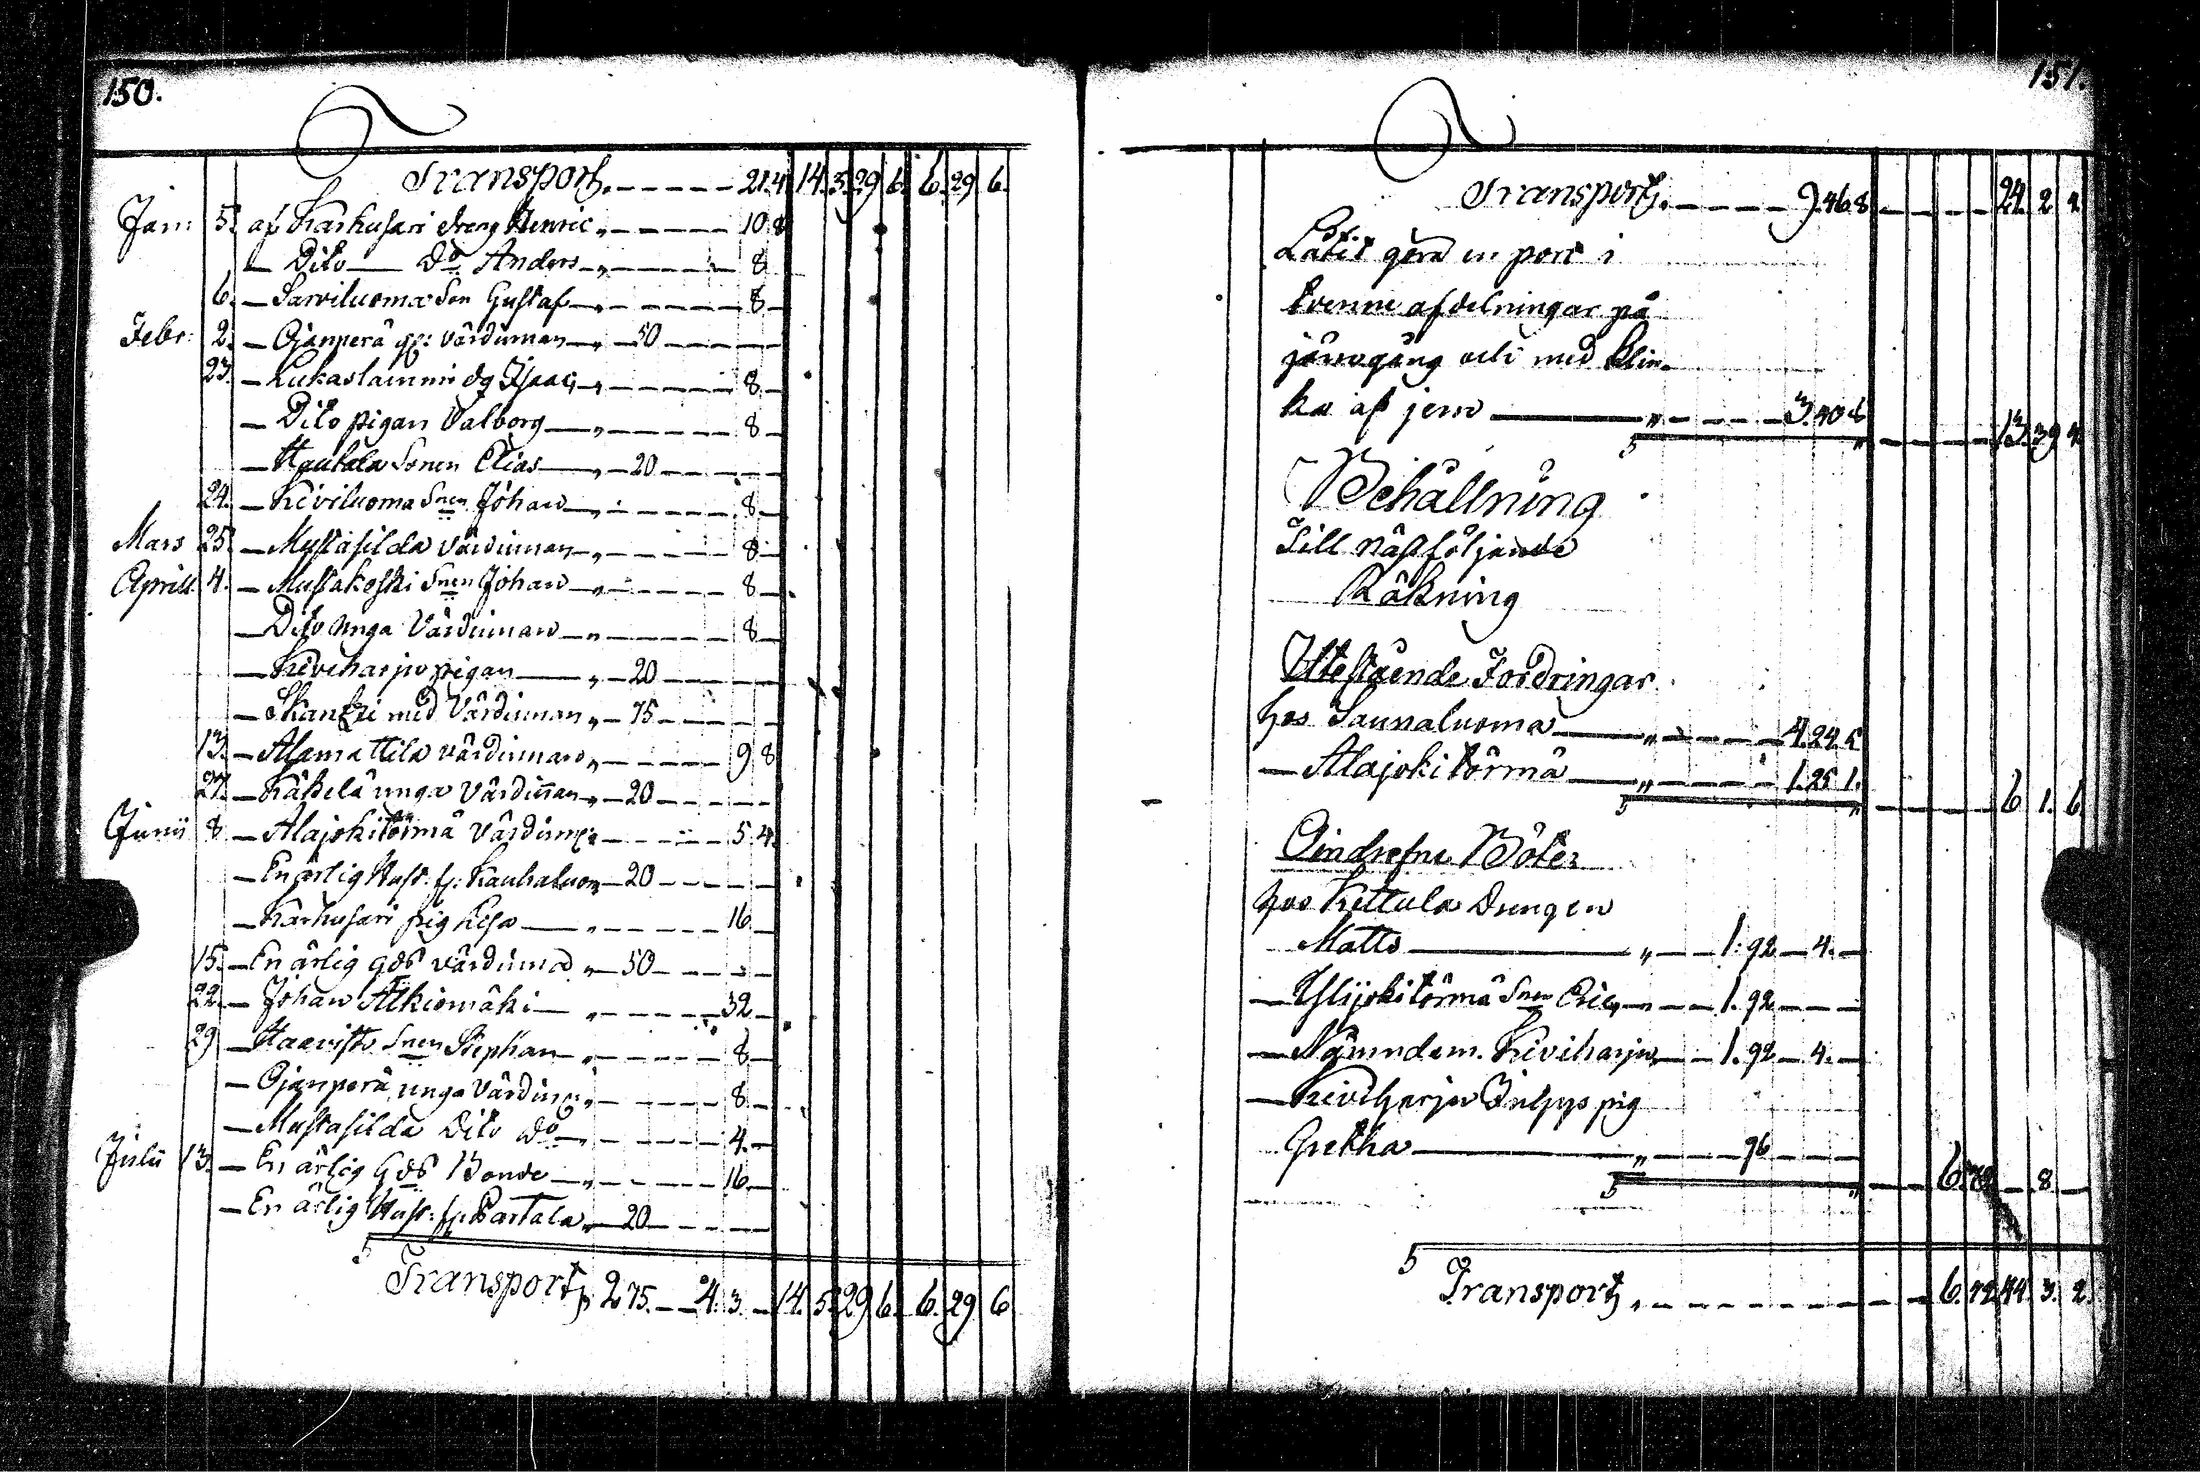 150.
Transport. 21.4 14. 3. 29 6. 6. 29 6.
Jan: 5. af Karhusari dreng Henric 10.8
— Dito — Do Anders 8
6. — Sarviluoma Son Gustaf 8
Febr: 2. — Ojanperä gl: Värdinnan 50
23. — Lukaslammi dg Isaac 8
— Dito pigan Valborg 8
— Hautala Sonen Elias 20
24. — Kiviluoma Snen Johan 8
Mars 25. — Mustasilda Värdinnan 8
Aprill 4. — Mustakoski Snen Johan 8
— Dito unga Värdinnan 8
— Kiviharju pigan 20
— Skantzi mid Värdinnan 75
13. — Alamattila värdinnan 9 8
27. — Käkelä unga Värdinnan 20
Junii 8. — Alajokitörmä Värdinn: 5.4
— En ärlig Hust: fr: Kauhaluom 20
— Karhusari pig Lisa 16
15. — En ärlig gds värdinna 50
22. — Johan Alkiomäki 32
29. — Haavisto Snen Stephan 8
— Ojanperä unga Värdin: 8
— Mustasilda Dito do 4
Julii 13. — En ärlig Gds Bonde 16
— En ärlig Hust: fr: Partala 20
Transport, 2 75. — 4. 3. — 14. 5. 29 6. 6. 29 6
151.
Transport. 9.46.8 24. 2 4
Låtit göra en port i
tvenne afdelningar på
järngång och med klin-
ka af jern 3.40.6
13. 39 4
Behållning
Till näst följande
Räkning
Utestående Fordringar
hos Saunaluoma 4.24.5
— Alajokitörmä 1.25 1.
6 1. 6
Oindrefne Böter
hos Kettula Drengen
Matts 1: 92 — 4. —
— Ylijokitörmä Snen Eric 1. 92
— Nämndem. Kiviharju 1. 92 — 4. —
— Kiviharju pig
Gretha 96
6. 72 — 8
Transport, 6. 72 44. 3. 2.